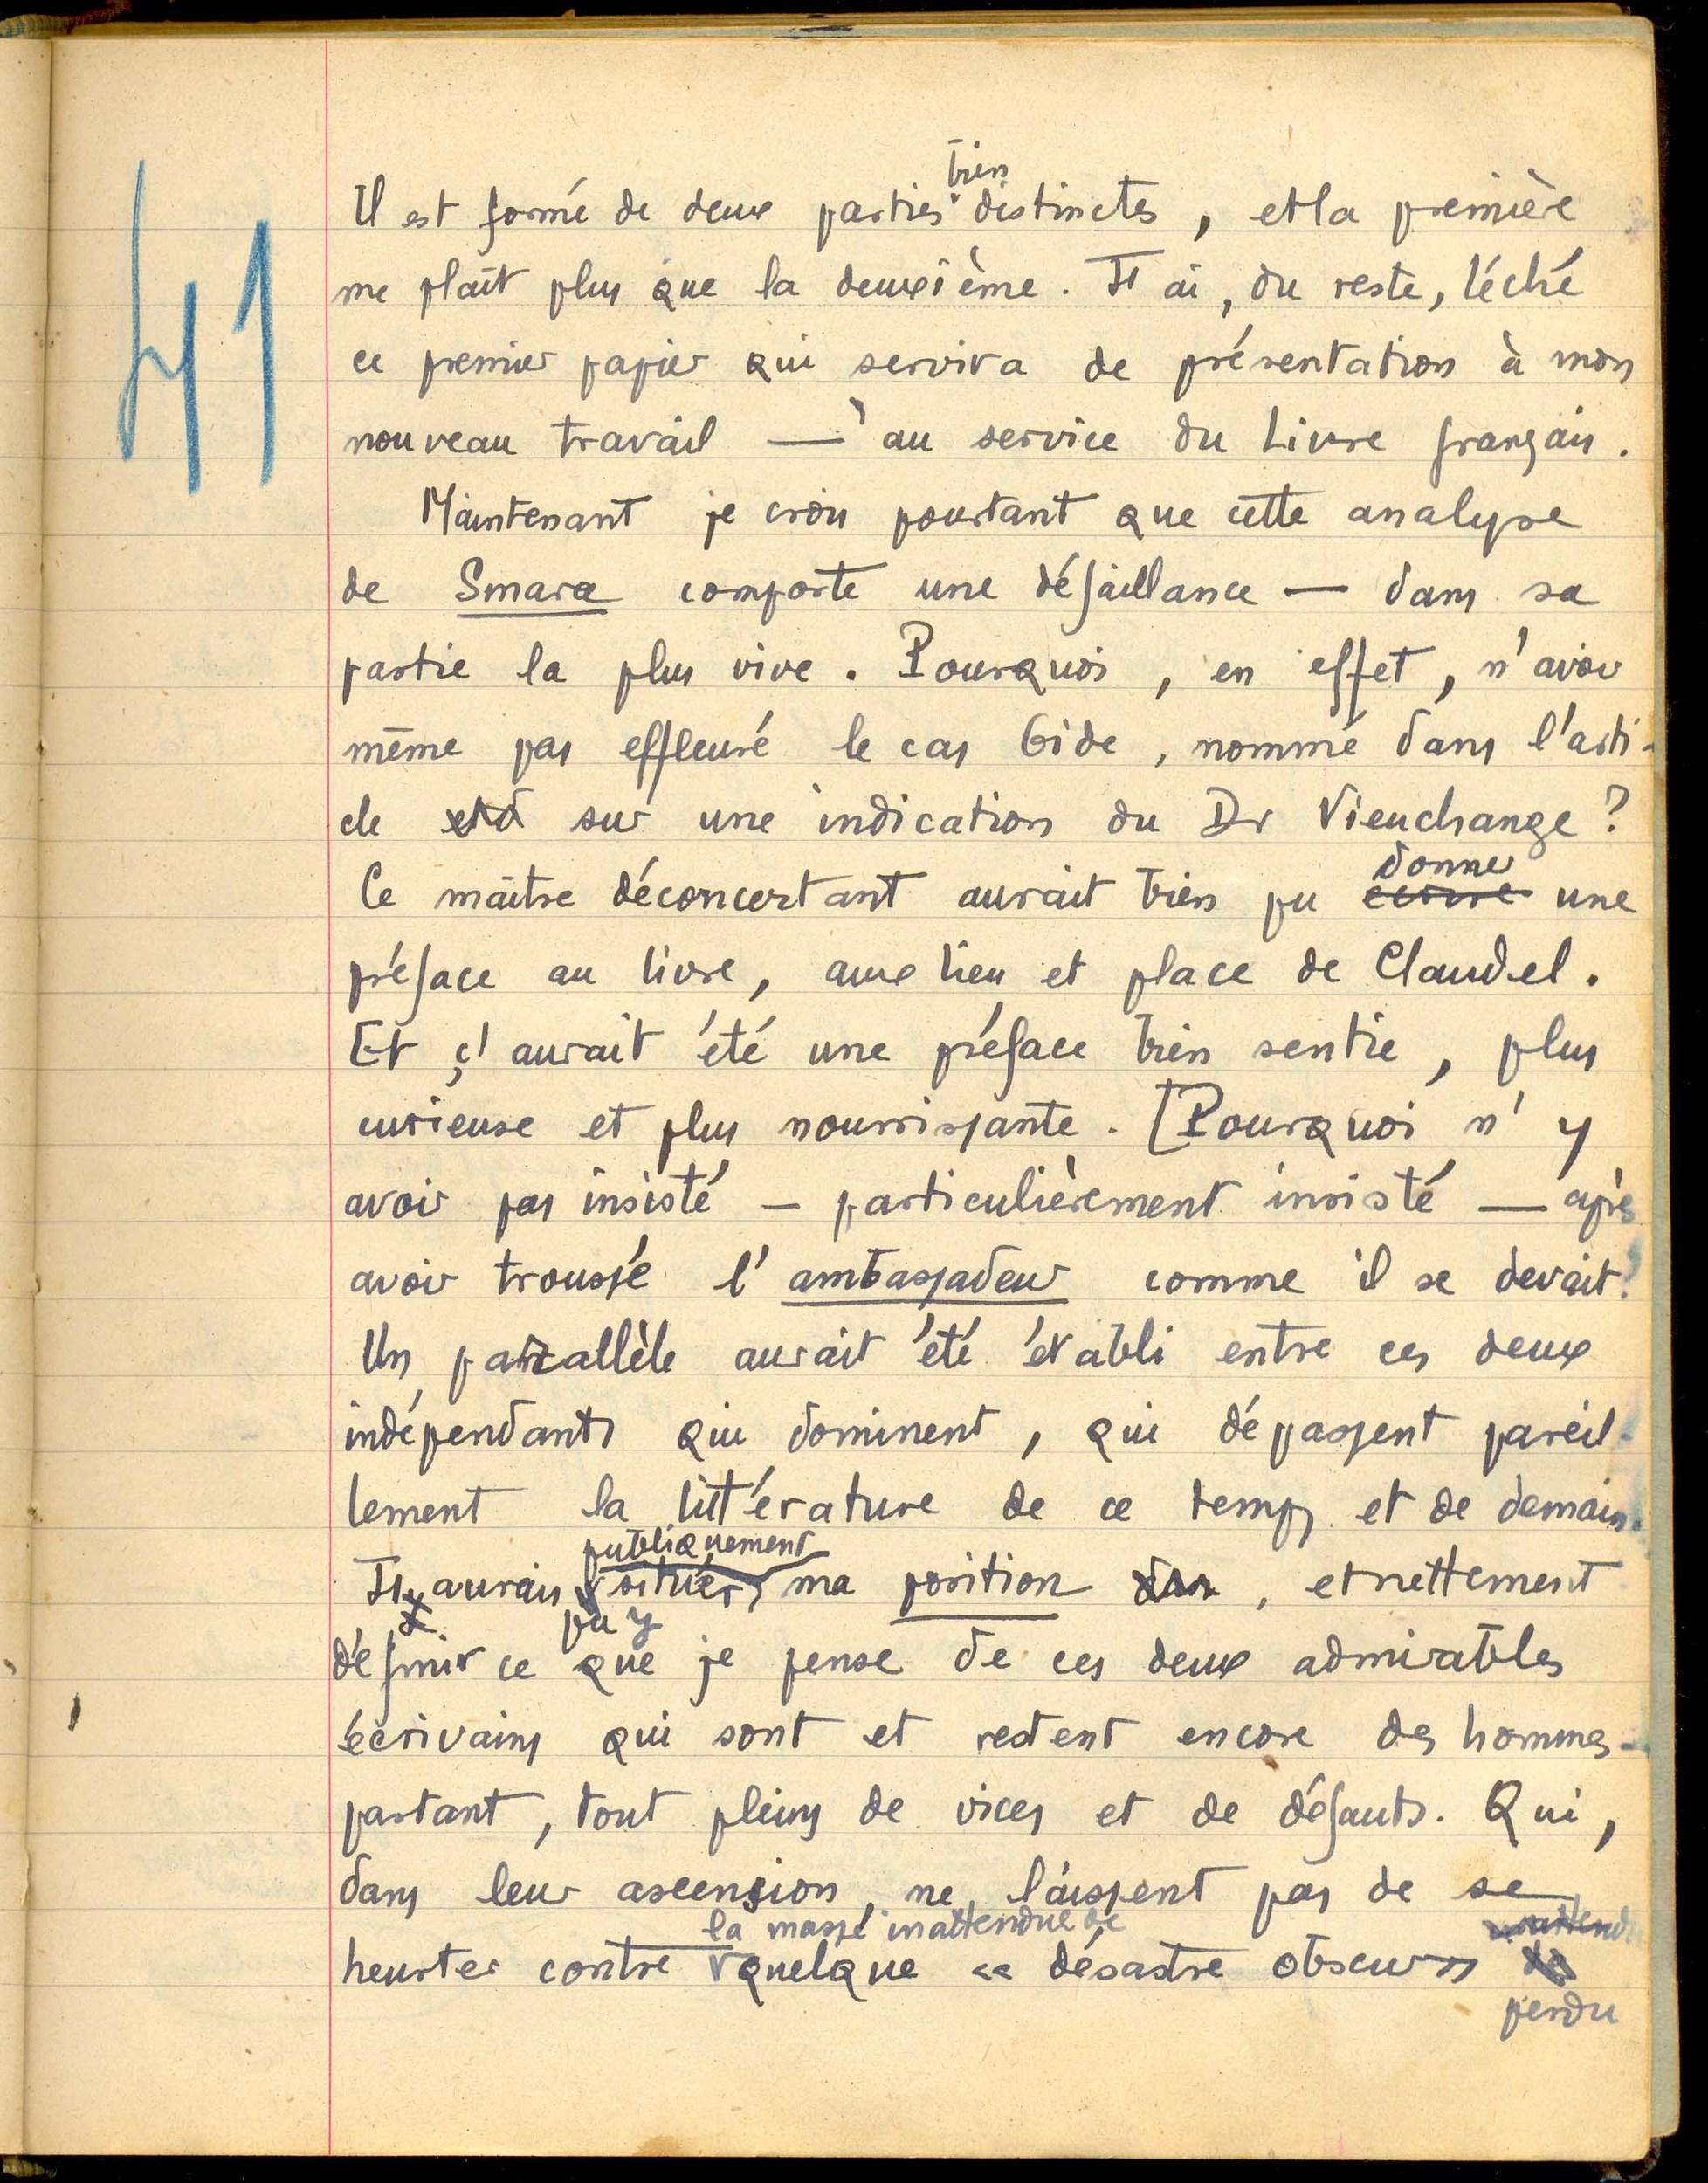 41
bien
Il est formé de deux parties distinctes, et la première
me plaît plus que la deuxième. J'ai, du reste, léché
ce premier papier qui servira de présentation à mon
nouveau travail — au service du Livre français.
Maintenant je crois pourtant que cette analyse
de Smara comporte une défaillance — dans sa
partie la plus vive. Pourquoi, en effet, n'avoir
même pas effleuré le cas Gide, nommé dans l'arti-
cle sur une indication du Dr Vieuchange ?
donner
Ce maître déconcertant aurait bien pu écrire une
préface au livre, aux lieu et place de Claudel.
Et ç'aurait été une préface bien sentie, plus
curieuse et plus nourrissante. [Pourquoi n'y
avoir pas insisté — particulièrement insisté — après
avoir troussé l'ambassadeur comme il se devait ?
Un parallèle aurait été établi entre ces deux
indépendants qui dominent, qui dépassent pareil-
lement la littérature de ce temps et de demain.
publiquement
J'y aurais situer ma position, et nettement
pu y
définir ce que je pense de ces deux admirables
écrivains qui sont et restent encore des hommes -
partant, tout pleins de vices et de défauts. Qui,
dans leur ascension, ne laissent pas de se
la masse inattendue de
heurter contre quelque « désastre obscur »
perdu